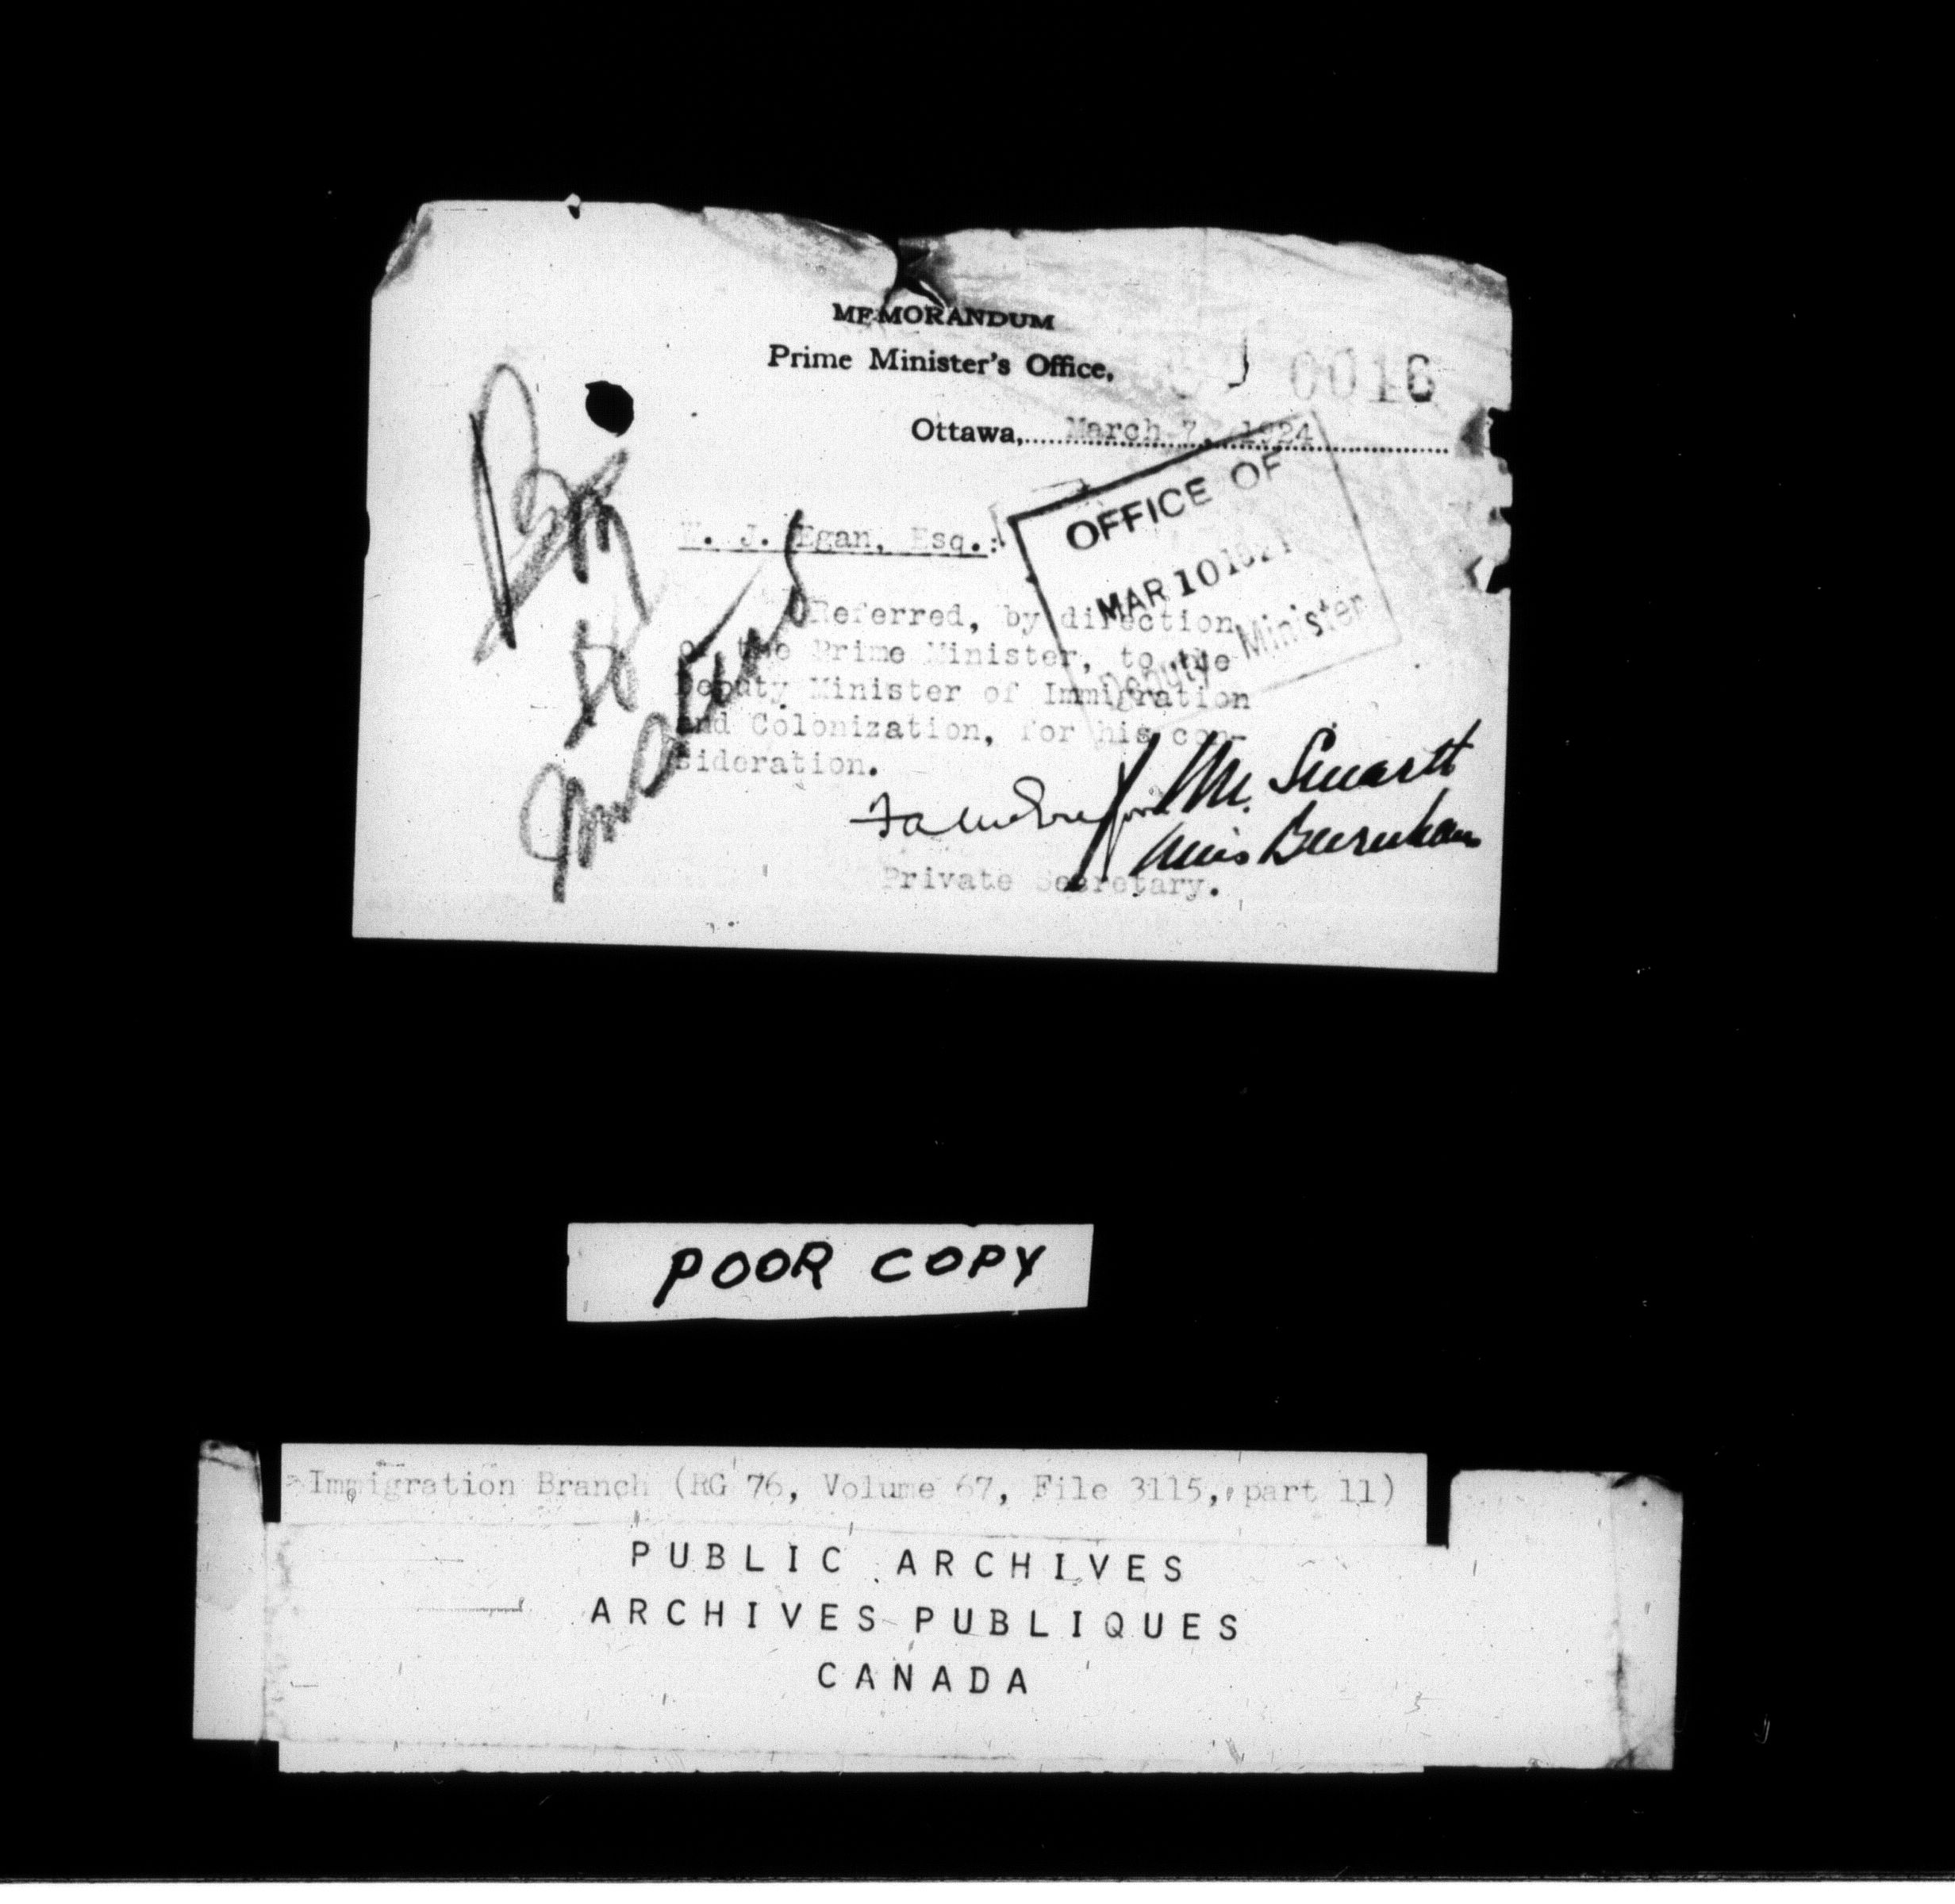 MEMORANDUM
Prime Minister's Office,
0016
Ottawa, March 7, 1924
OFFICE OF
MAR 10 1924
Deputy Minister
W. J. Egan, Esq.:
Referred, by direction
of the Prime Minister, to the
Deputy Minister of Immigration
and Colonization, for his con-
sideration.
Mr. Smart
Miss Burnham
Private Secretary.
POOR COPY
Immigration Branch (RG 76, Volume 67, File 3115, part 11)
PUBLIC ARCHIVES
ARCHIVES PUBLIQUES
CANADA